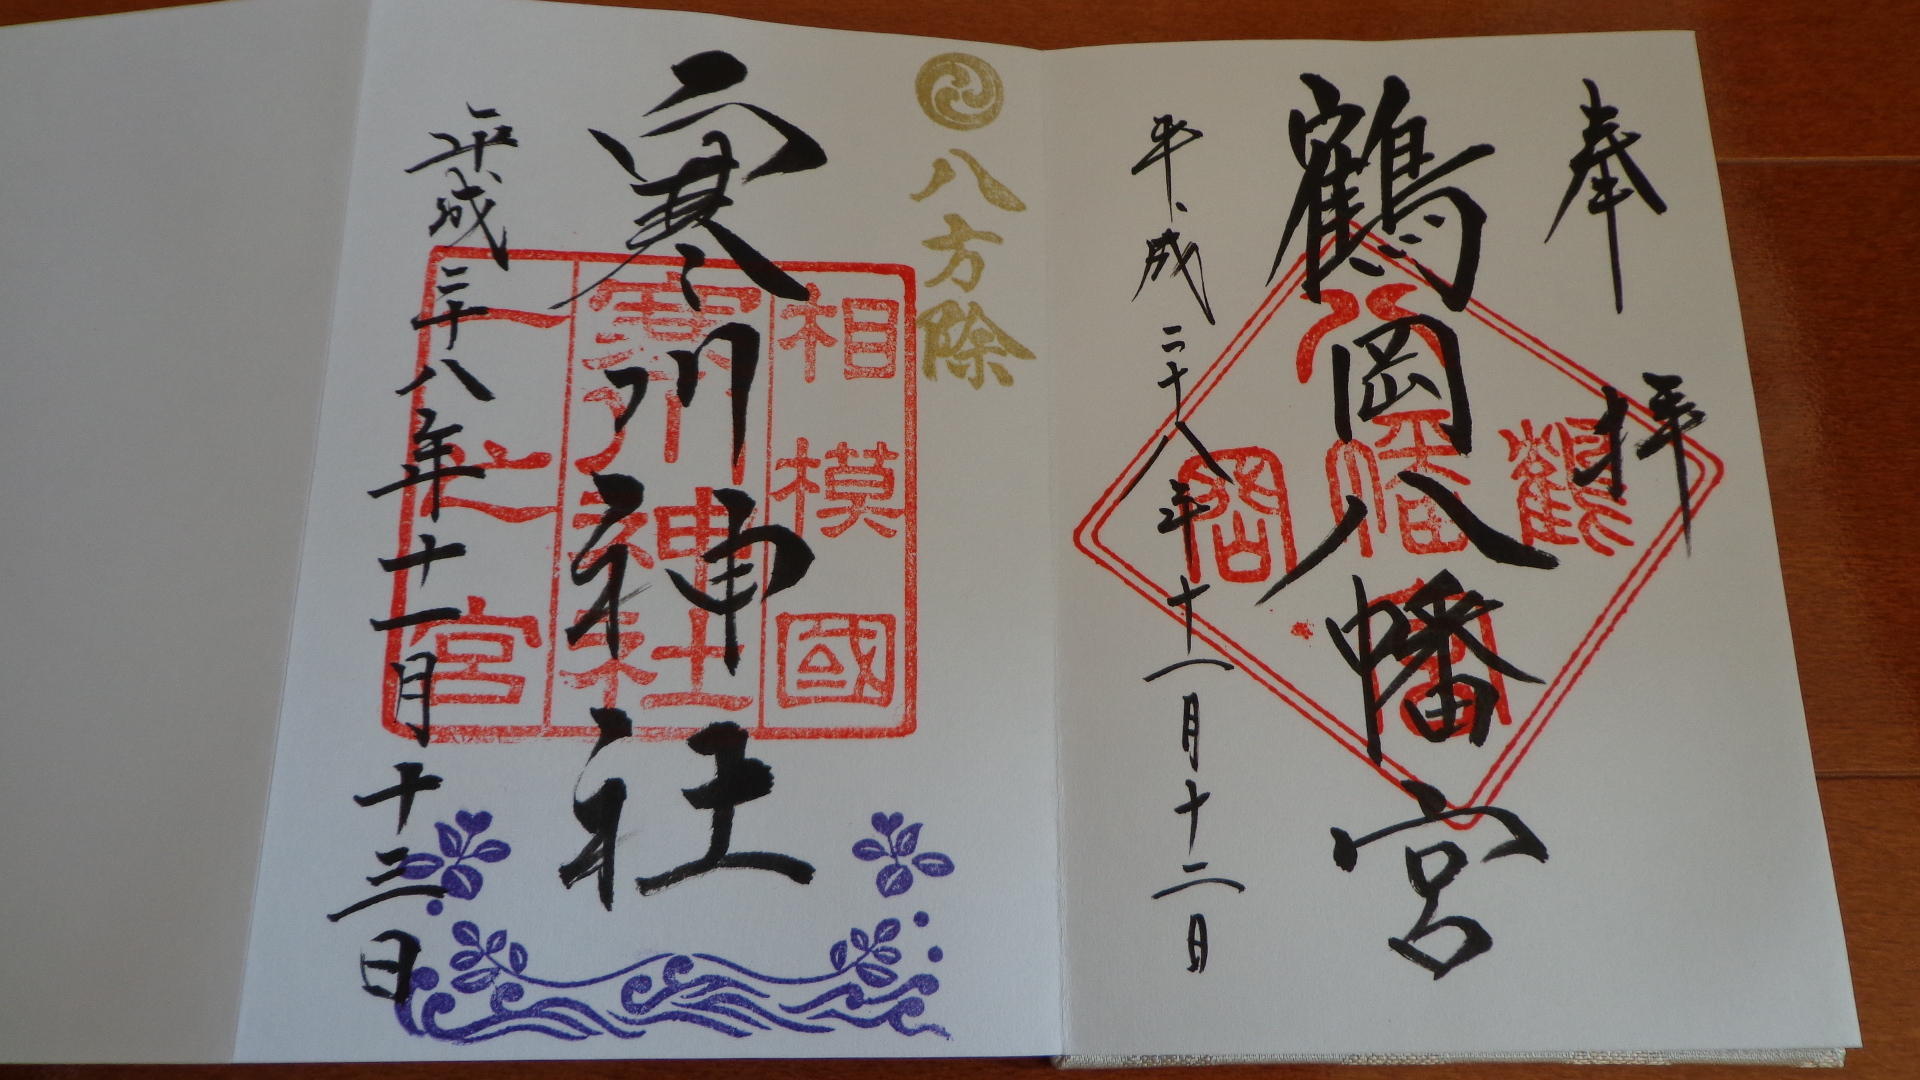 奉拝
鶴岡八幡宮
八幡宮
鶴
岡
平成二十八年十一月十二日
八方除
寒川神社
相模國
寒川神社
一之宮
平成二十八年十一月十三日